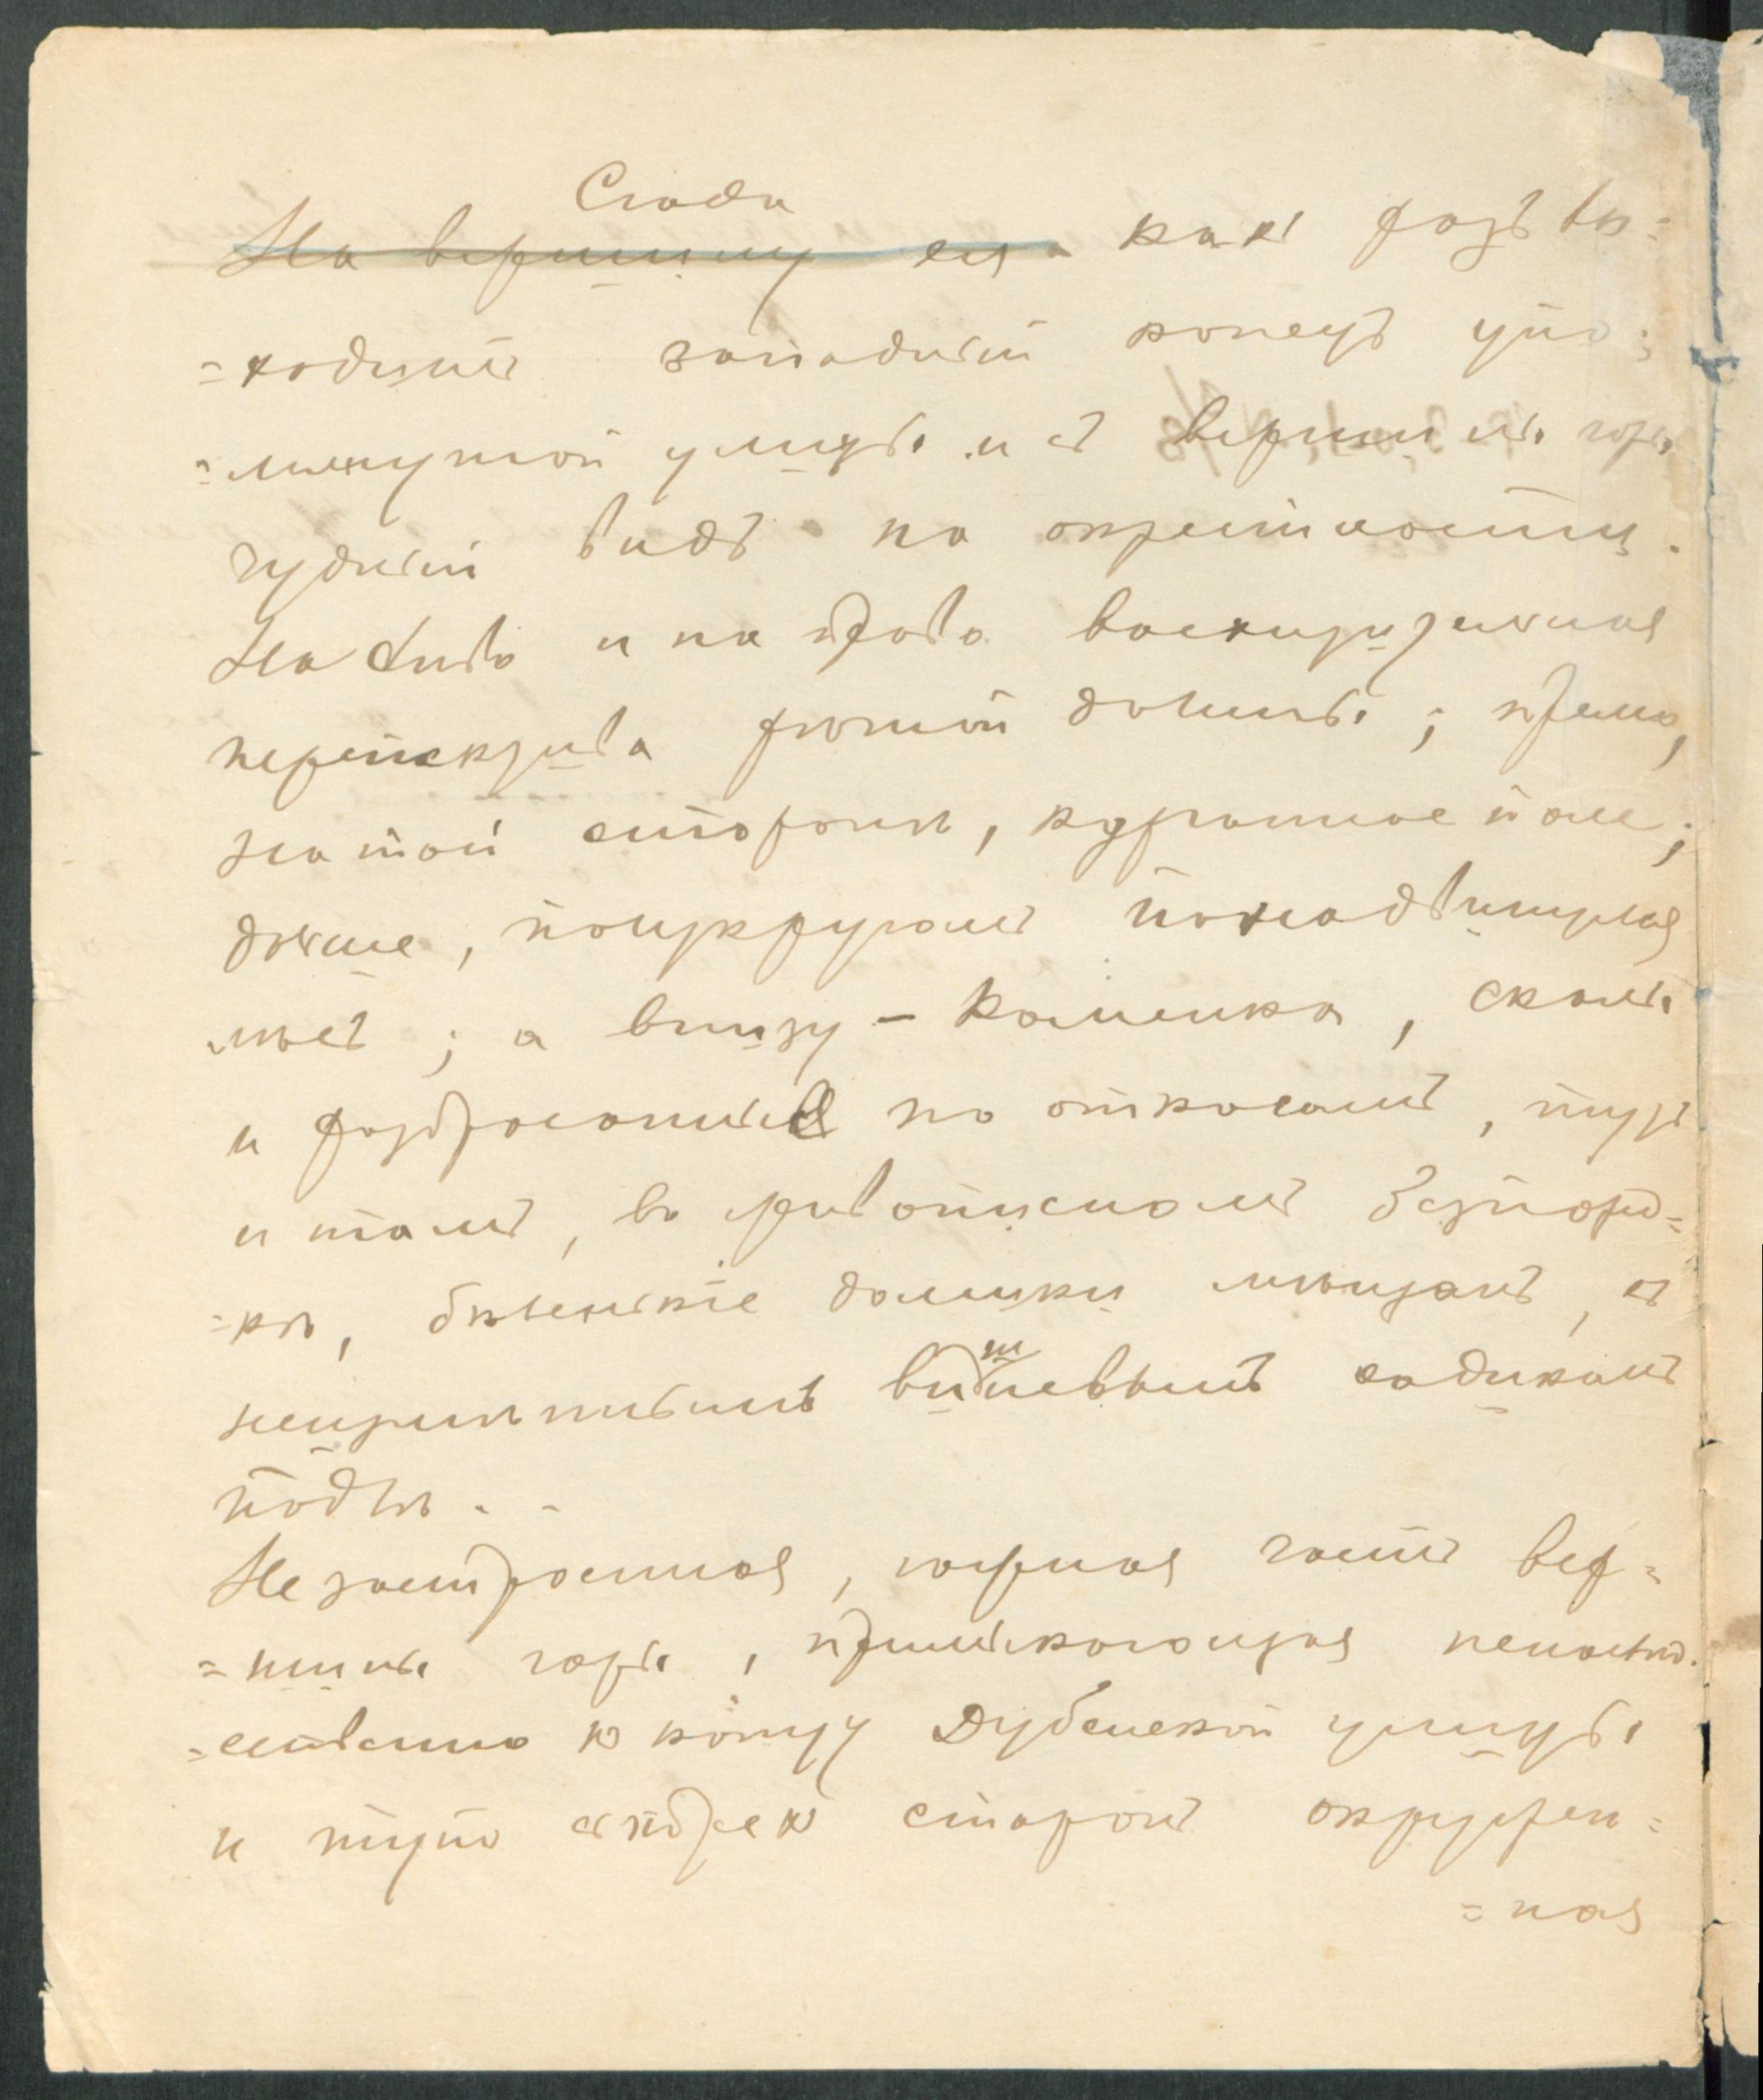 Сюда
На вершину ея какъ разъ вы=
=ходитъ западный конецъ упо=
=мянутой улицы и съ вершины горы
чудный видъ на окрестности.
На лево и на право восхитительная
перспектива долины; прямо,
на той стороне, курганное поле;
дальше, полукругомъ понадвинулся
лесъ; а внизу – Каменка, скалы
и разбросанные по откосамъ, тутъ
и тамъ, въ живописномъ безпоряд=
=кѣ, бѣленькіе домики мещанъ, съ
неизменнымъ вишневымъ садикомъ
подлѣ. .
Незастроенная, северная часть вер=
=шины горы, примыкающая непосред=
=ственно къ концу Дубенской улицы
и тутъ старой окружен=
=ная